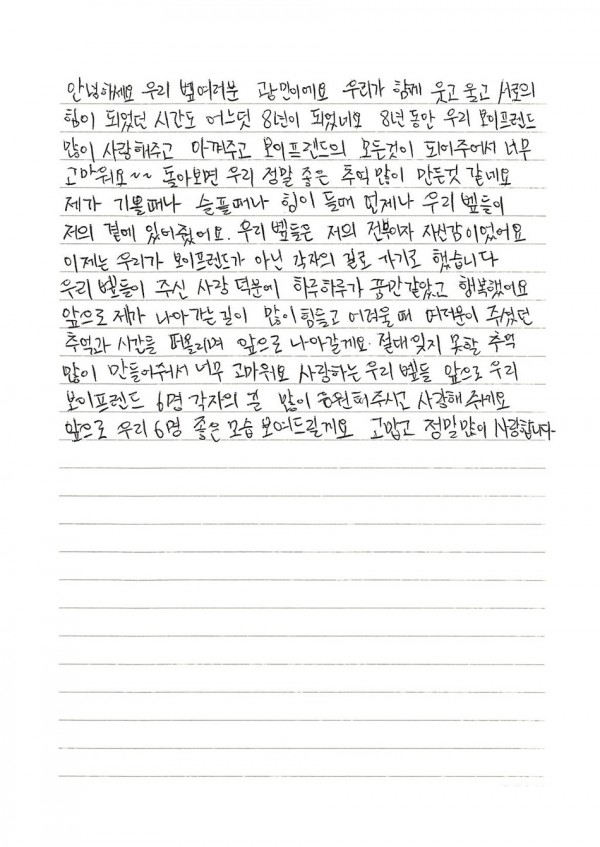 안녕하세요 우리 벺여러분 광민이에요 우리가 함께 웃고 울고 서로의
힘이 되었던 시간도 어느덧 8년이 되었네요 8년 동안 우리 보이프렌드
많이 사랑해주고 아껴주고 보이프렌드의 모든것이 되어주어서 너무
고마워요~~ 돌아보면 우리 정말 좋은 추억 많이 만든것 같네요
제가 기쁠때나 슬플때나 힘이 들때 언제나 우리 벺들이
저의 곁에 있어줬어요. 우리 벺들은 저의 전부이자 자신감이었어요
이제는 우리가 보이프렌드가 아닌 각자의 길로 가기로 했습니다
우리 벺들이 주신 사랑 덕분에 하루하루가 풍만같았고 행복했어요
앞으로 제가 나아가는길이 많이 힘들고 어려울 때 여러분이 주셨던
추억과 시간들 떠올리며 앞으로 나아갈게요. 절대 잊지 못할 추억
많이 만들어줘서 너무 고마워요 사랑하는 우리 벺들 앞으로 우리
보이프렌드 6명 각자의 길 많이 응원해주시고 사랑해 주세요
앞으로 우리 6명 좋은 모습 보여드릴게요 고맙고 정말많이 사랑합니다